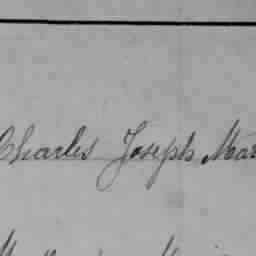 Charles Joseph Mar